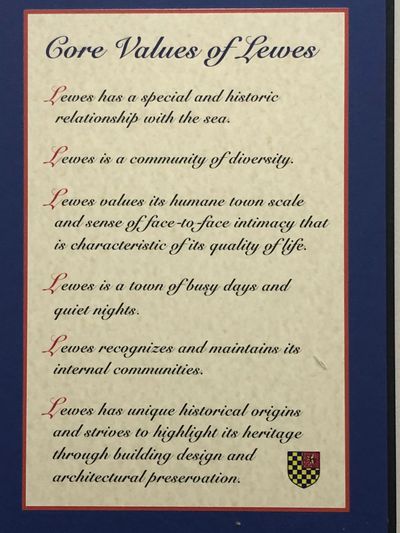 Core Values of Lewes
Lewes has a special and historic
relationship with the sea.
Lewes is a community of diversity.
Lewes values its humane town scale
and sense of face-to-face intimacy that
is characteristic of its quality of life.
Lewes is a town of busy days and
quiet nights.
Lewes recognizes and maintains its
internal communities.
Lewes has unique historical origins
and strives to highlight its heritage
through building design and
architectural preservation.